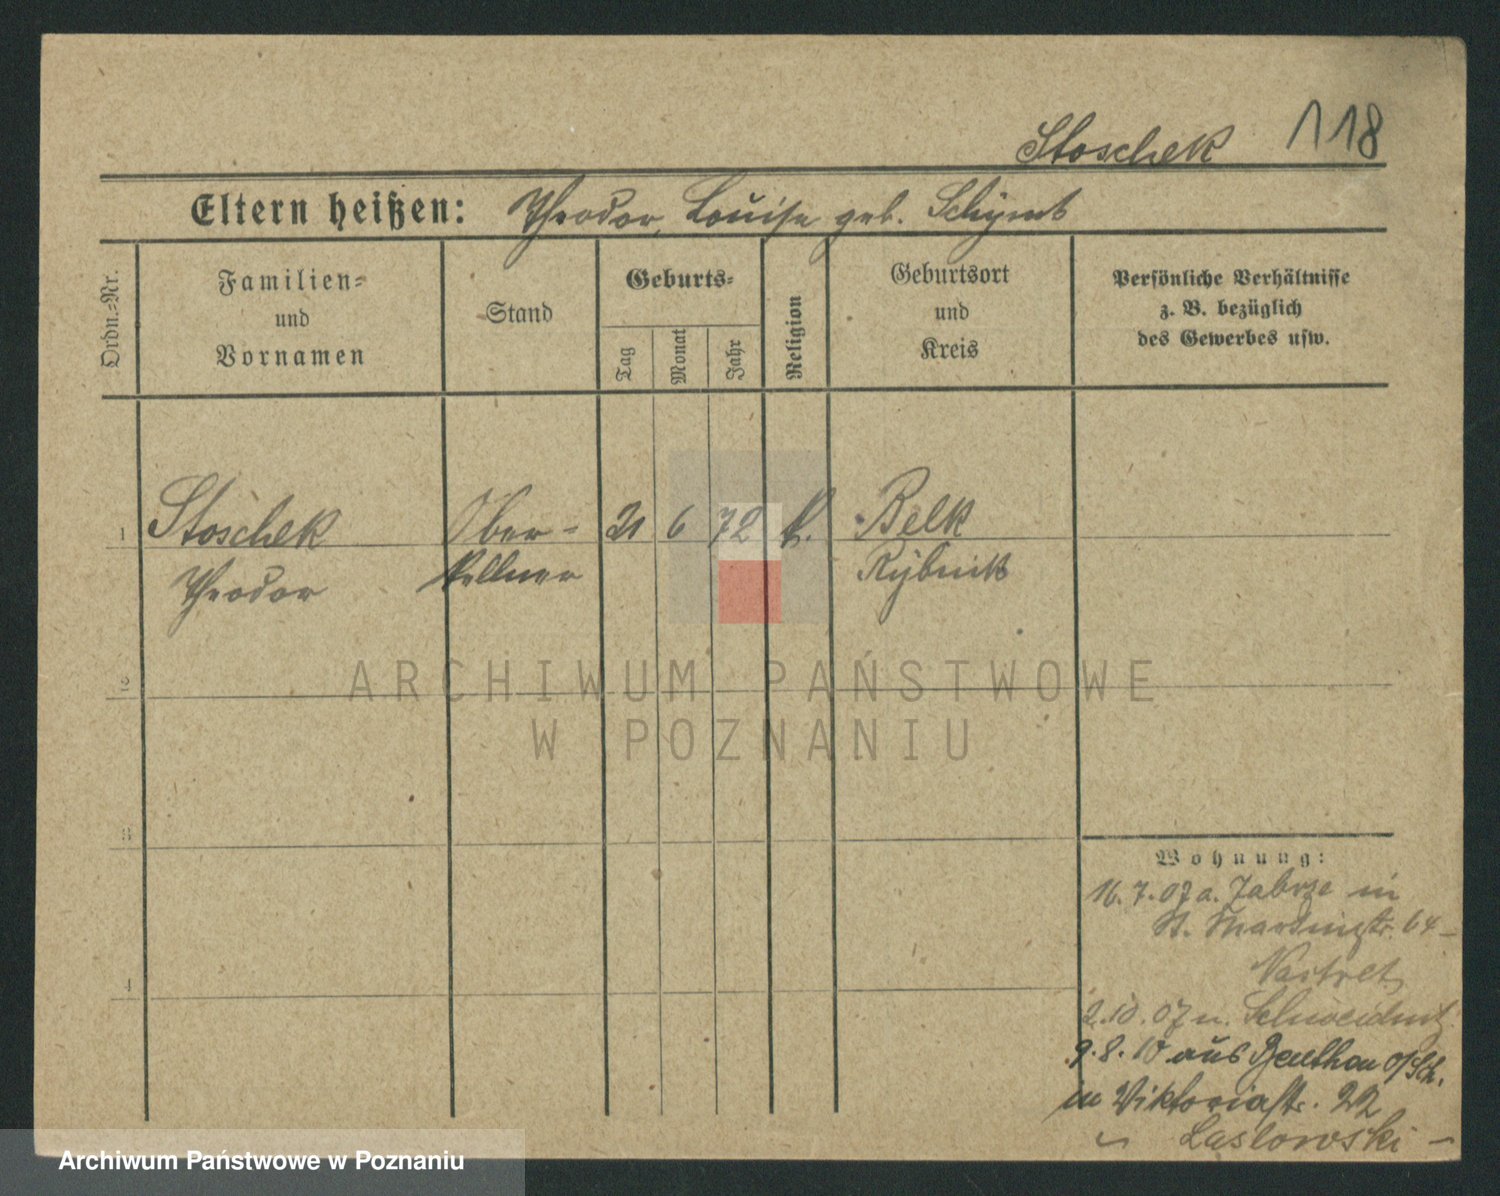 Stoschek 118
Eltern heißen: Theodor, Louise geb. Schymt
Ordn.-Nr.
Familien-
und
Vornamen
Stand
Geburts-
Tag
Monat
Jahr
Religion
Geburtsort
und
Kreis
Persönliche Verhältnisse
z. B. bezüglich
des Gewerbes usw.
1 Stoschek Ober- 21 6 72 k. Belk
Theodor kellner Rybnik
2
3
4
Wohnung:
16.7.07 a. Zabrze in
St. Martinstr. 64 –
2.10.07 n. Schneidmhl
9.8.10 aus Beuthen O/Sch.
in Viktoriastr. 22
Laslowski –
ARCHIWUM PAŃSTWOWE
W POZNANIU
Archiwum Państwowe w Poznaniu